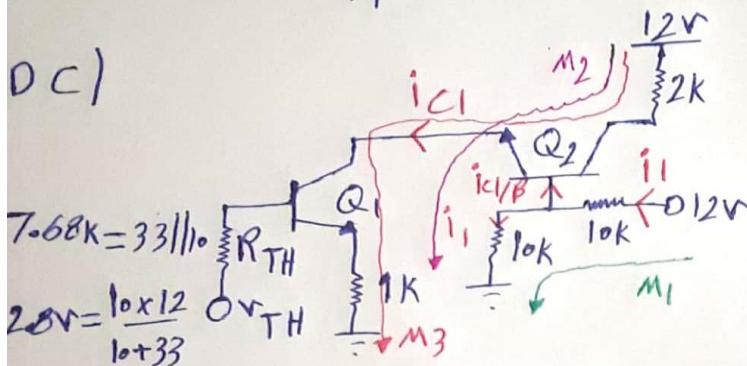 DC)
12V
M2
2K
iC1
Q2
iC1/β
i1
12V
Q1
i1
10K
10K
7.68K=33||10
RTH
1K
M1
2.8V=10x12/10+33
VTH
M3